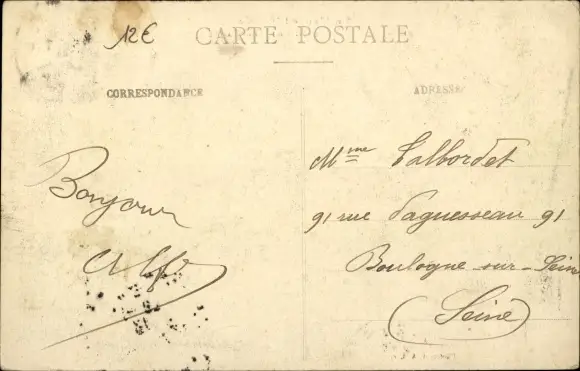 12€
CARTE POSTALE
CORRESPONDANCE
ADRESSE
Bonjour
Mme Talbordet
91 rue Daguesseau 91
Boulogne-sur-Seine
(Seine)